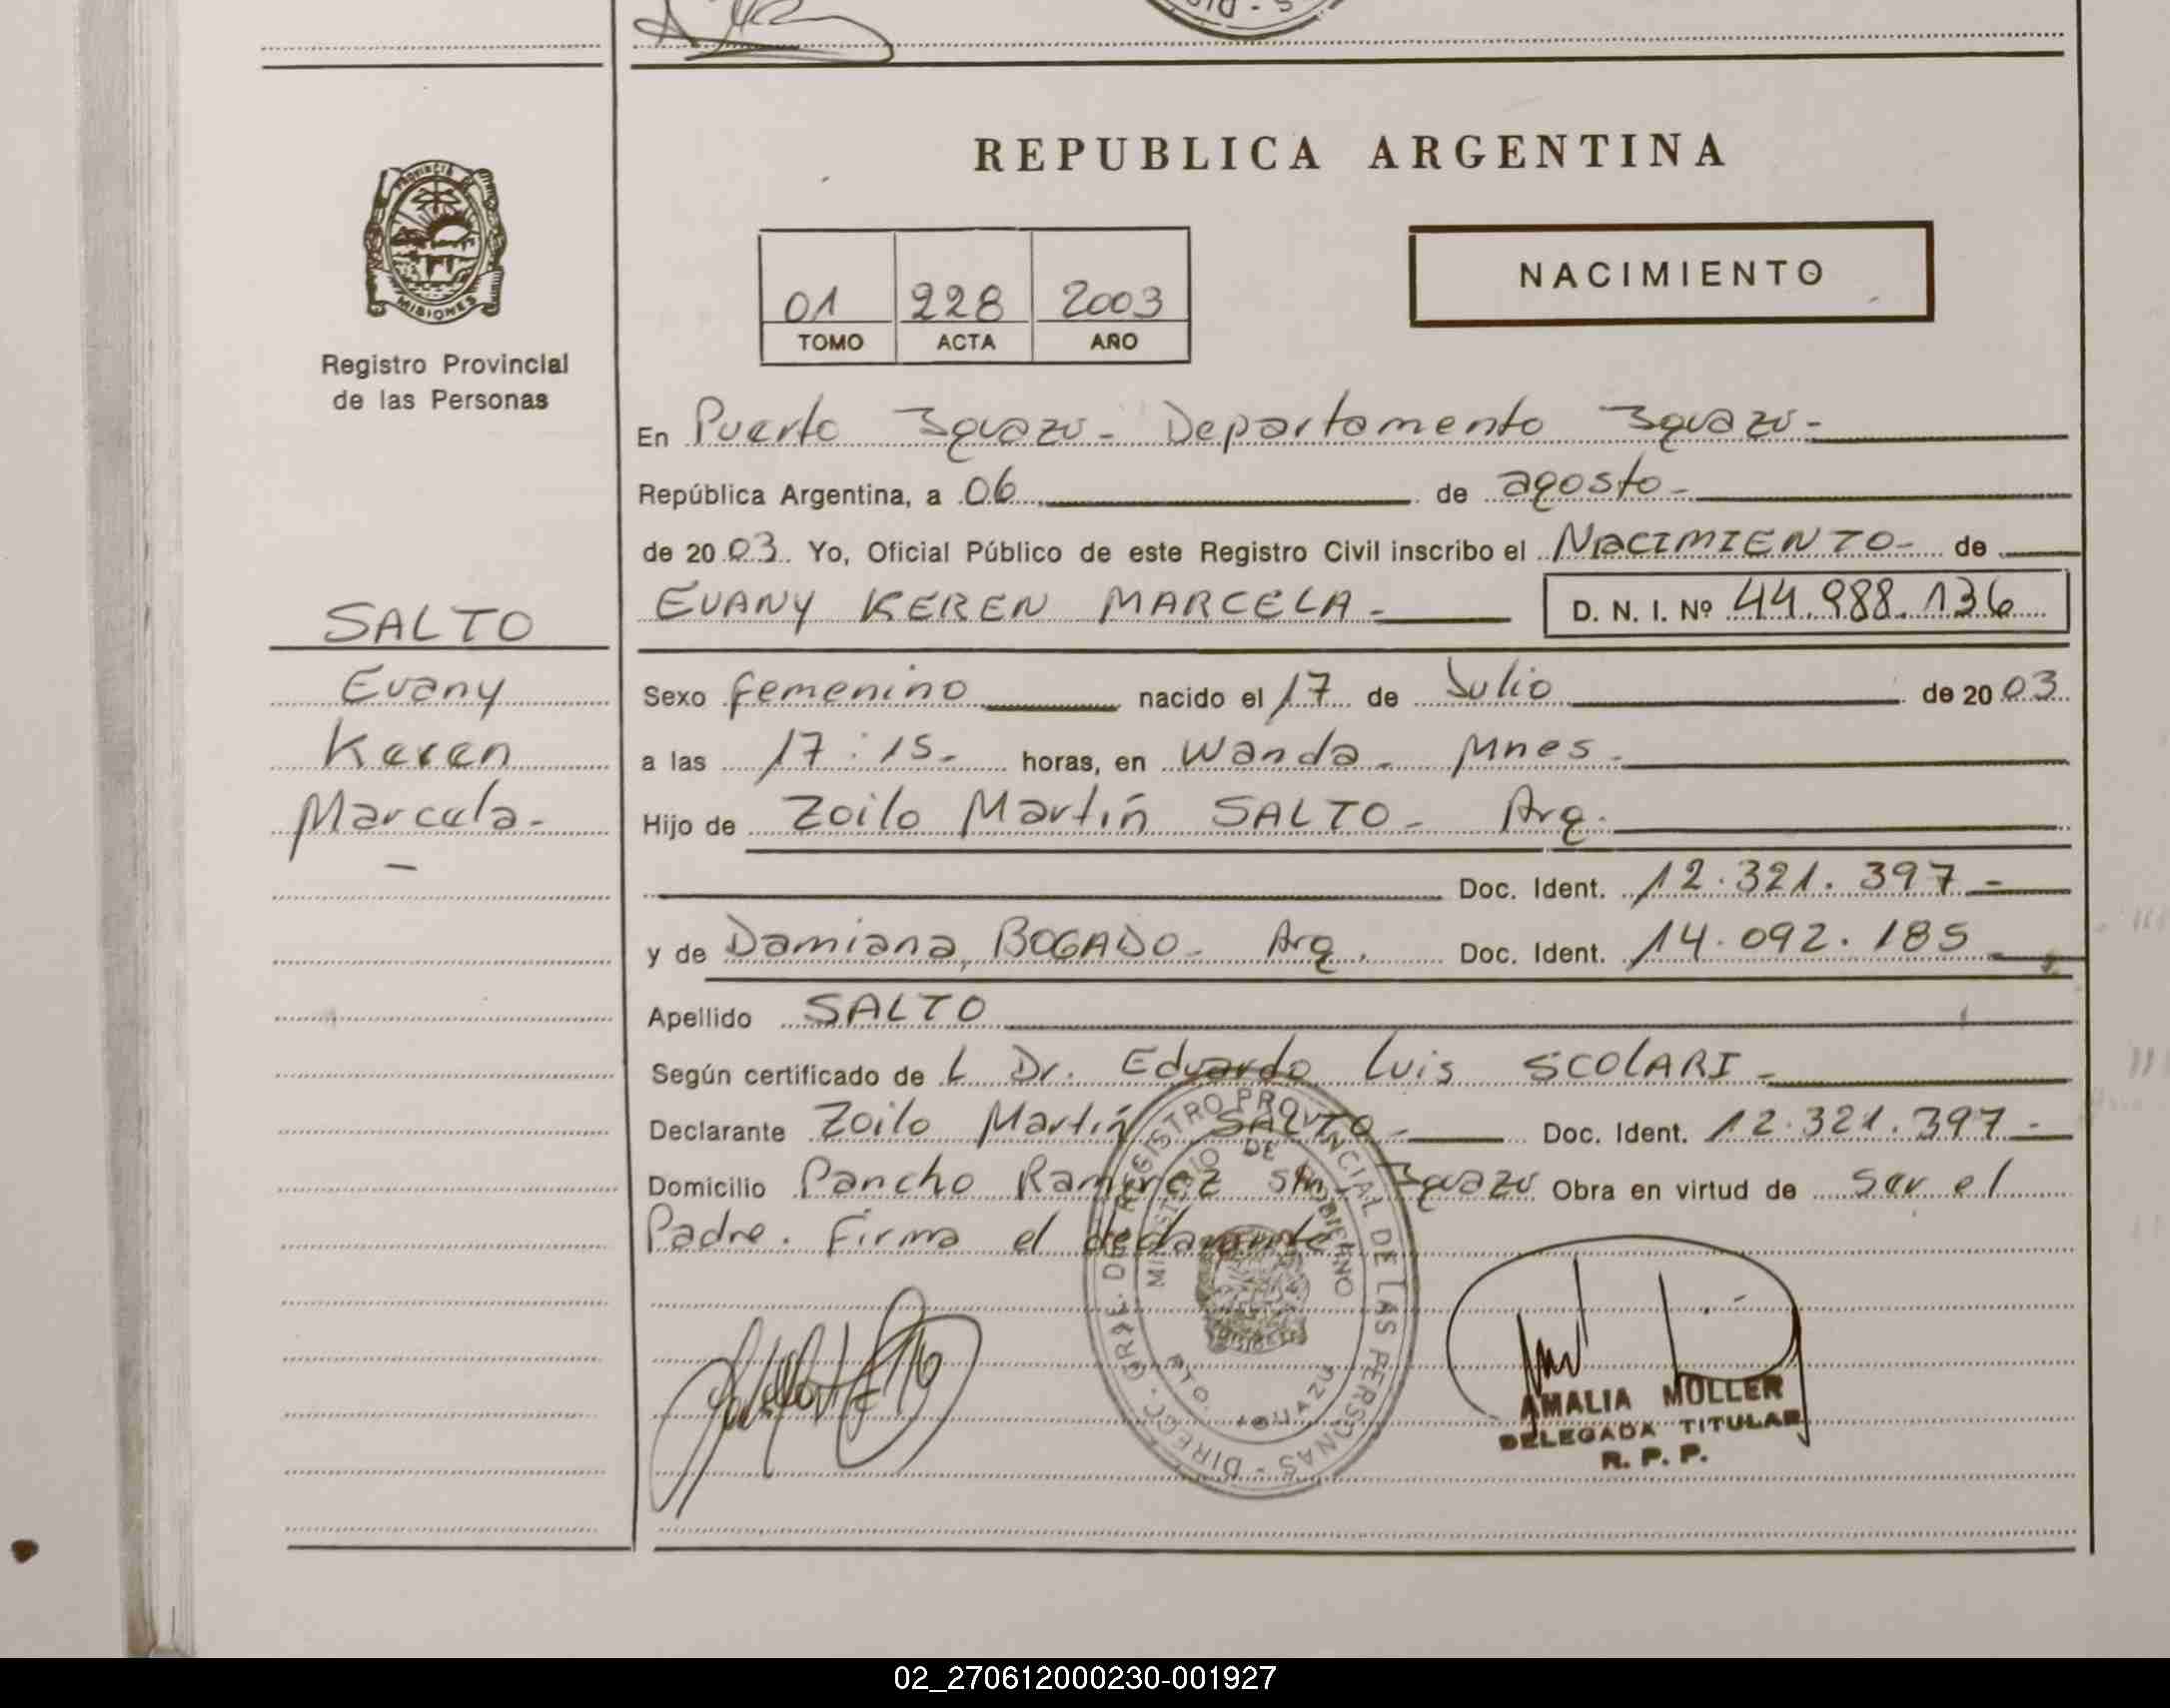 REPUBLICA ARGENTINA
PROVINCIA DE
MISIONES
Registro Provincial
de las Personas
NACIMIENTO
01 228 2003
TOMO ACTA AÑO
En Puerto Iguazu - Departamento Iguazu -
República Argentina, a 06 de agosto -
de 2003. Yo, Oficial Público de este Registro Civil inscribo el NACIMIENTO - de
EVANY KEREN MARCELA - D. N. I. Nº 44.988.136
SALTO
Evany
Keren
Marcela -
Sexo femenino nacido el 17 de Julio de 2003
a las 17:15 - horas, en Wanda - Mnes -
Hijo de Zoilo Martín SALTO - Arg.
Doc. Ident. 12.321.397 -
y de Damiana, BOGADO - Arg. Doc. Ident. 14.092.185
Apellido SALTO
Según certificado de L Dr. Eduardo Luis SCOLARI -
Declarante Zoilo Martín SALTO - Doc. Ident. 12.321.397 -
Domicilio Pancho Ramirez s/n - Iguazu Obra en virtud de ser el
Padre. Firma el declarante
DIREC. GRAL. DEL REGISTRO PROVINCIAL DE LAS PERSONAS -
MINISTERIO DE GOBIERNO
PTO. IGUAZU
AMALIA MULLER
DELEGADA TITULAR
R. P. P.
02_270612000230-001927